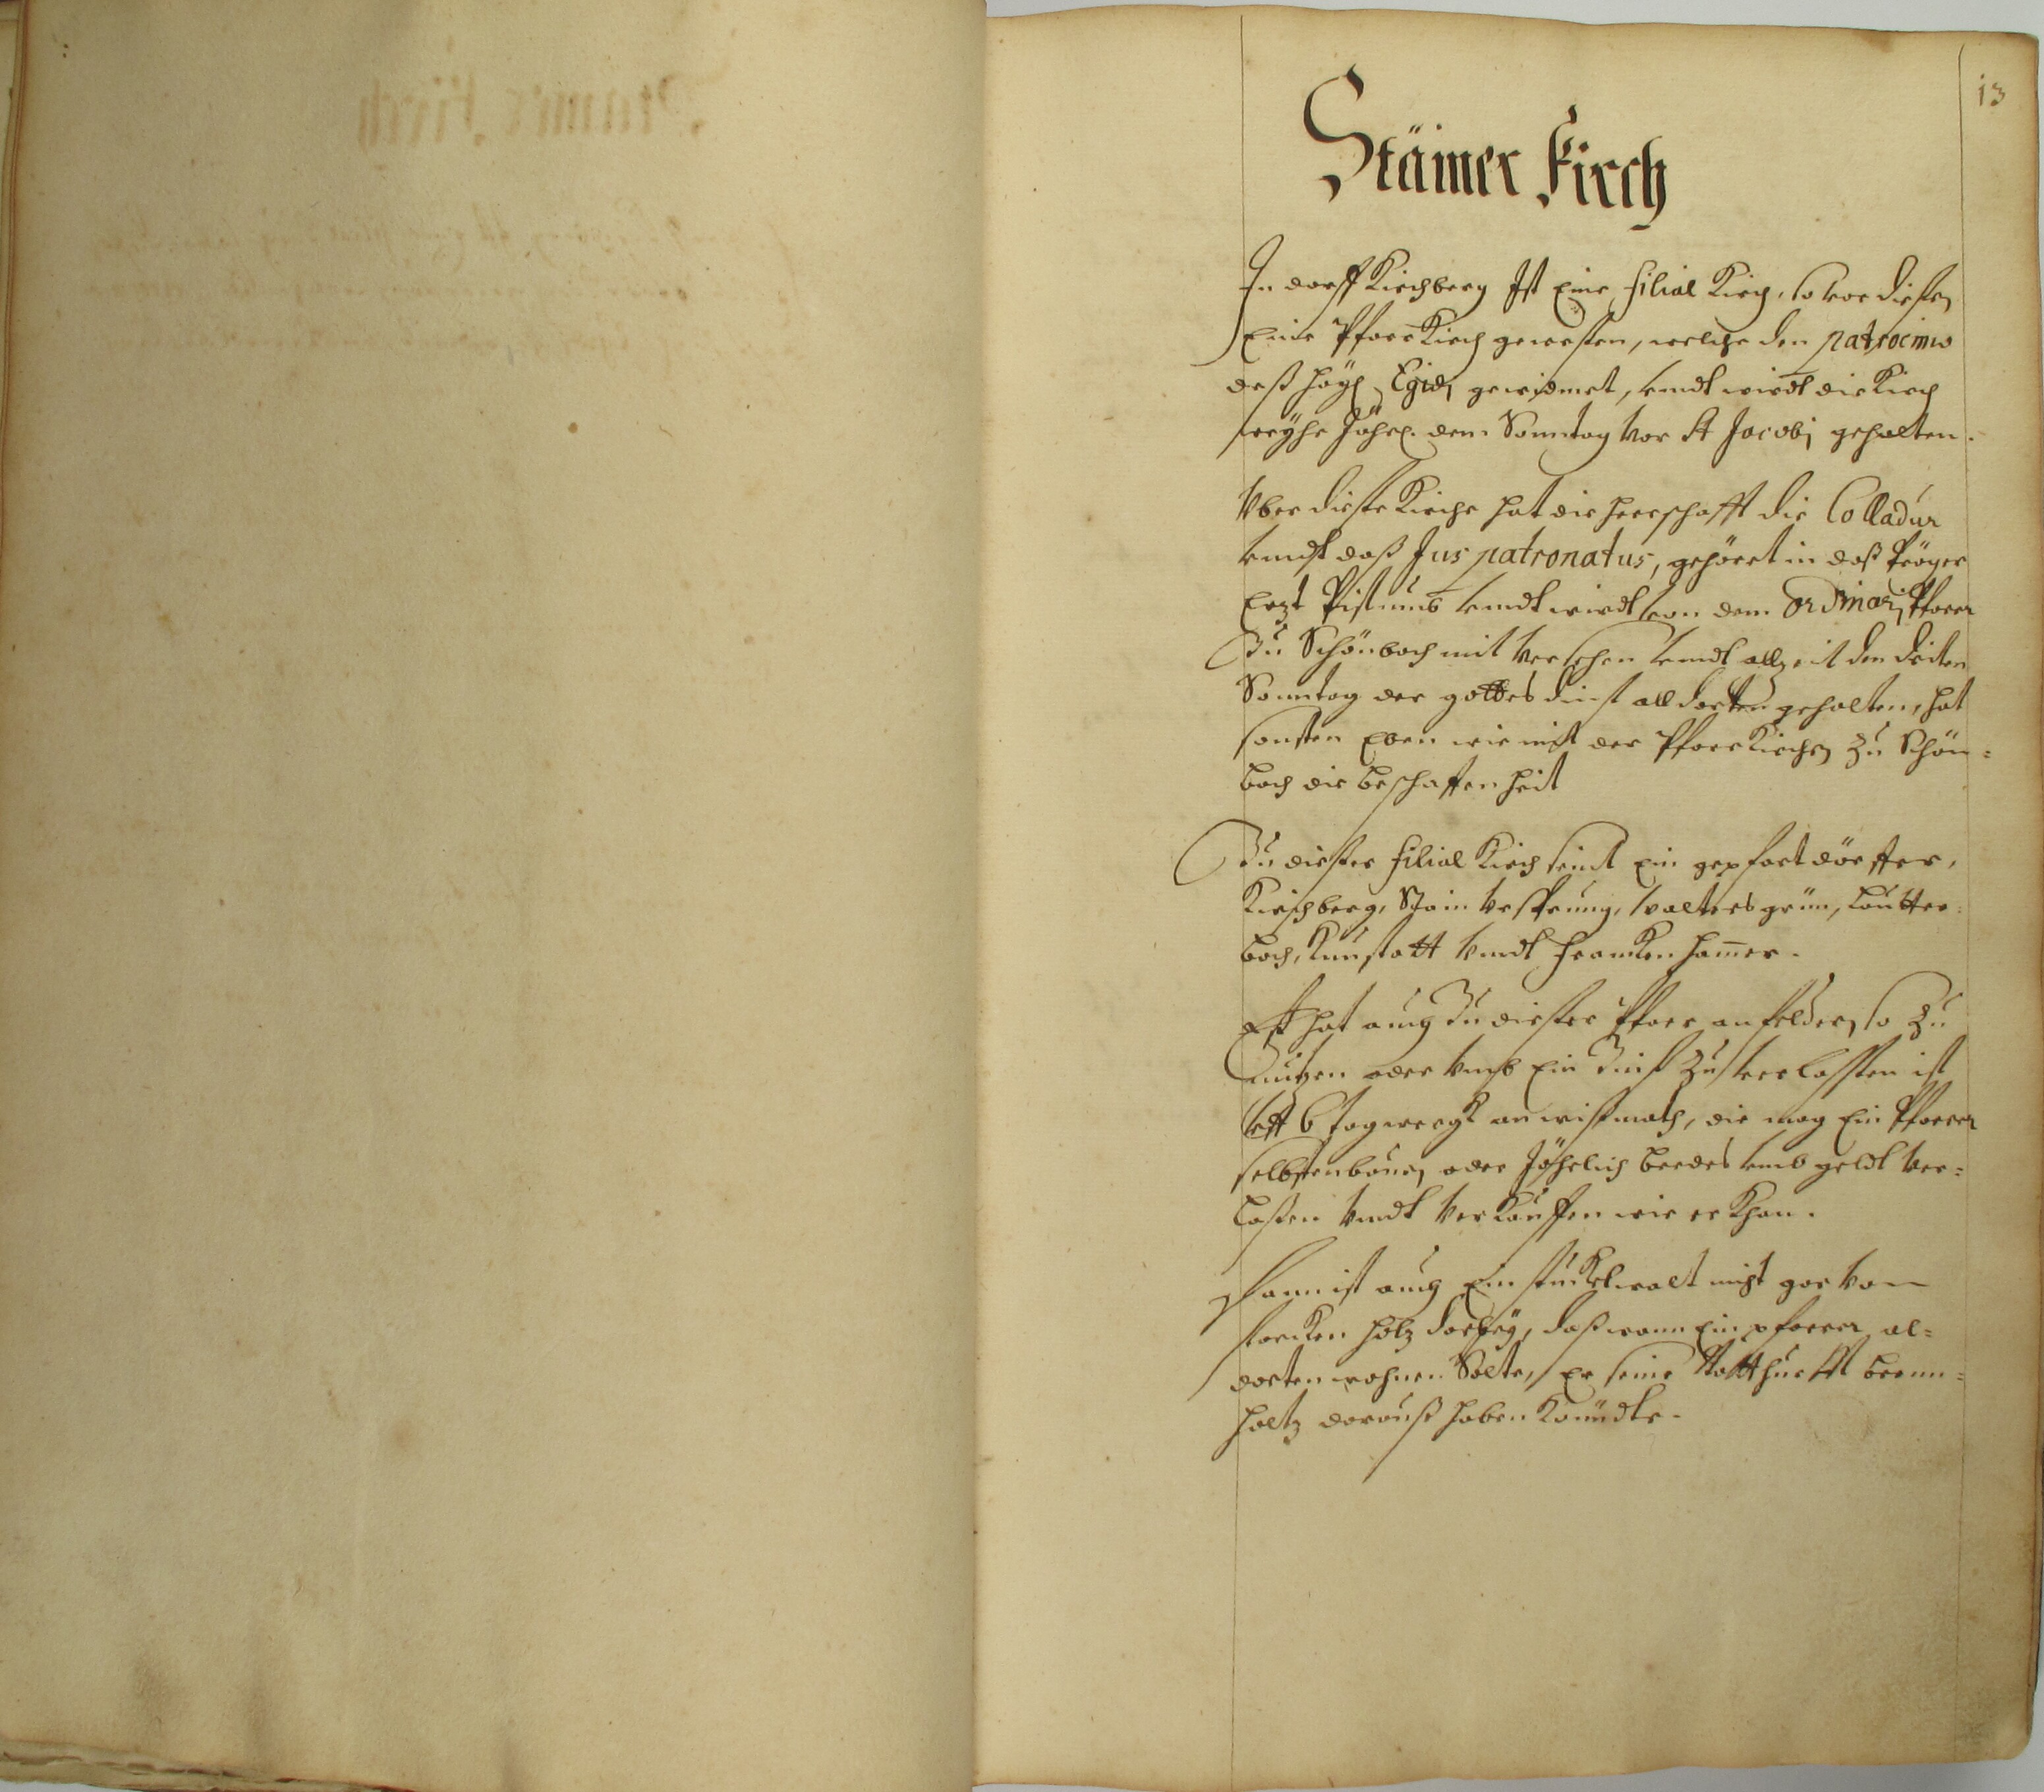 13
Stäiner Kirch
In dorff Kirchberg Ist Eine filial Kirch, so vor diesen
Eine Pfarr Kirch gewessen, welche den patrocinio
deß häyl Egidj gewidmet, vndt wirdt die Kirch
weyhe Jährl. dem Sonntag vor St Jacobj gehalten.
Vber diesse Kirche hat die herrschafft die Colladur
vndt daß Jus patronatus, gehöret in daß Präger
Erzt Pistumb vndt wirdt von dem Ordinarj Pfarrer
Zu Schönbach mit versehen vndt allzeit den driten
Sonntag der gottes dinst all dorten gehalten, hat
sonsten Eben wie mit der Pfarr Kirchen Zu Schön=
bach die beschaffenheit
Zu diesser filial Kirch seindt Ein gepfart dörffer,
Kirchberg, Stain Vrsprung, Waltersgrün, Lautter=
bach, Kunstatt vndt Francken ham̄er.
Est hat auch Zu diesser Pfarr an felder, so Zu
nützen oder vmb Ein Zinß Zu verlassen ist
6 tagwergk an wißmath, die mag Ein Pfarrer
selbsten bauen oder Jährlich beedes vmb geldt ver=
lasten vndt verkauffen wie er Khan.
Dann ist auch Ein stückel walt nicht gar von
starcken holtz darbey, daß wann Ein pfarrer al=
dorten wohnen Solte, Er seine Notthurfft brenn=
holtz darauß haben Könndte.